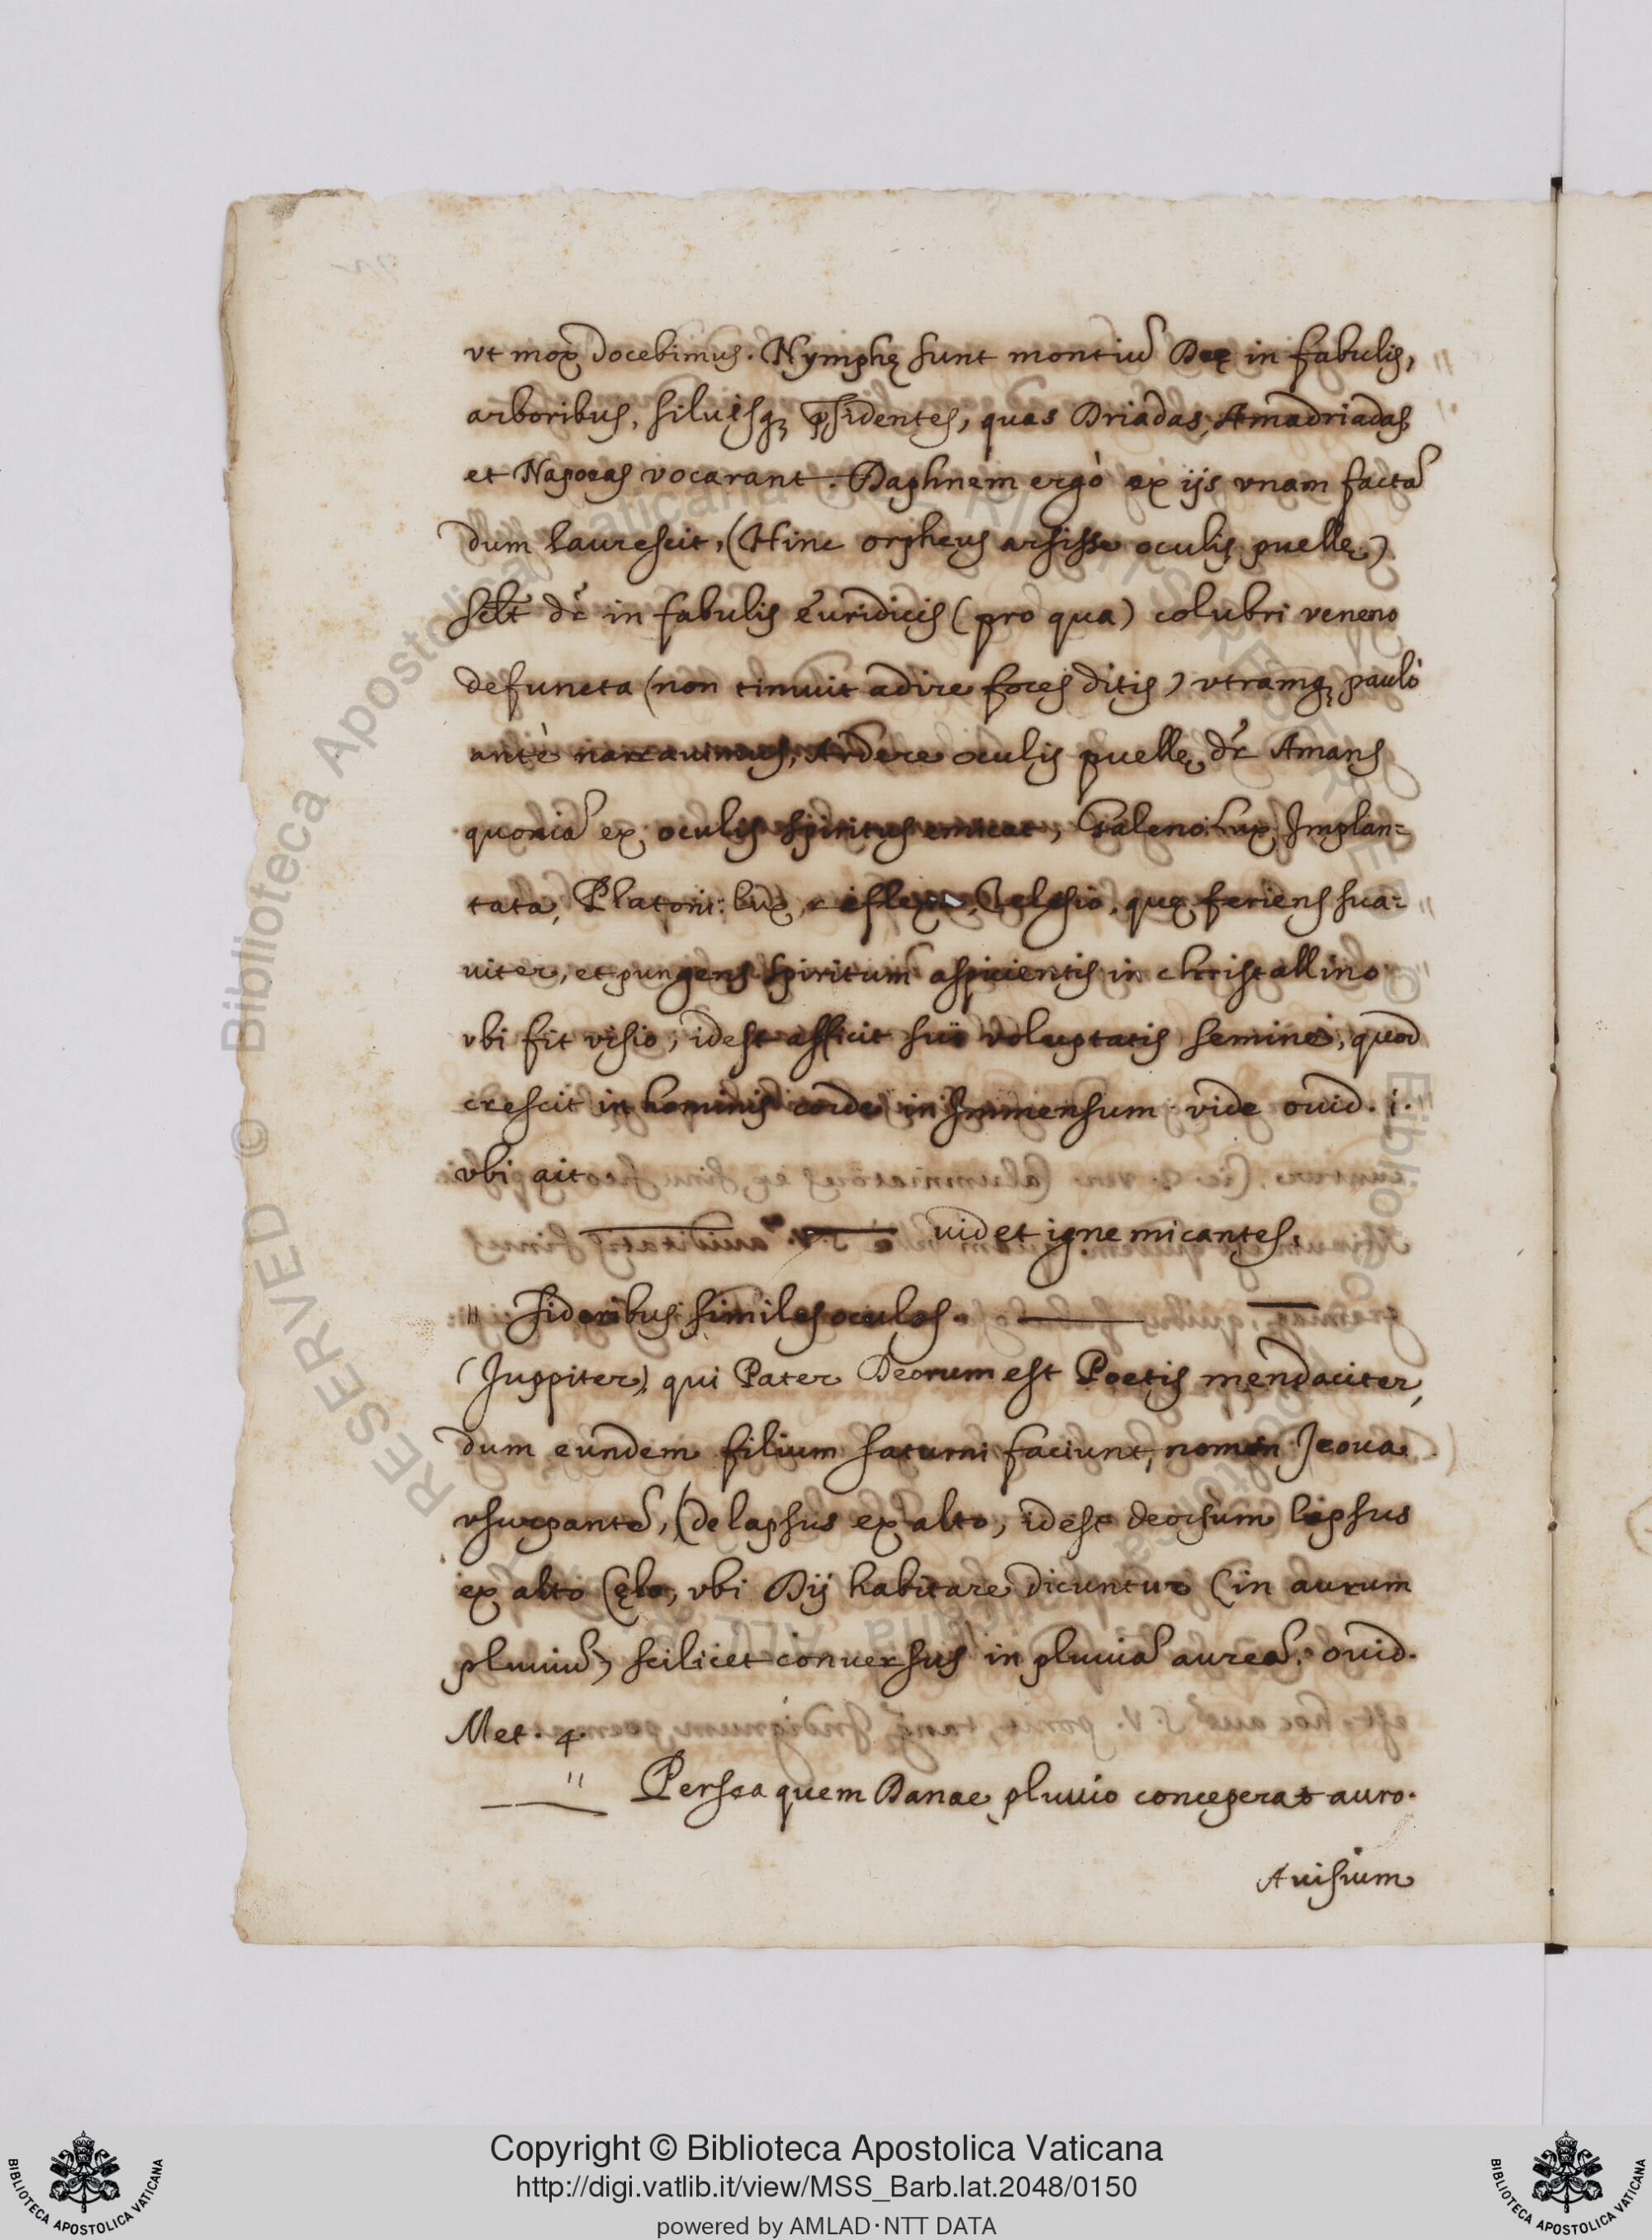 vt mox docebimus. Nymphę sunt montiū Deę in fabulis,
arboribus, siluisq; p̄sidentes, quas Driadas, Amadriadas,
et Napoeas vocarant. Daphnem ergò ex ijs vnam factā
dum laurescit, (Hinc orpheus arsisse oculis puellę)
dr̄ in fabulis euridicis (pro qua) colubri veneno
defuncta (non timuit adire foces ditis) vtramq; paulò
antè narrauimus, Ardere oculis puellę dr̄ Amans
quoniā ex oculis spiritus emicat, Galeno: lux Implan=
tata, Platoni: lux, reflexa, Telesio, quę feriens sua=
uiter, et pungens spiritum aspicientis in christallino
vbi fit visio, idest afficit sui voluptatis semine, quod
crescit in hominis corde in Immensum. vide ouid. i.
vbi ait
uidet igne micantes,
" sideribus similes oculos.
(Juppiter) qui Pater Deorum est Poetis mendaciter,
dum eundem filium saturni faciunt, nomen Jeoua
vsurpantē, (delapsus ex alto, idest deorsum lapsus
ex alto Cęlo, vbi Dij habitare dicuntur (in aurum
pluuiū) scilicet conuersus in pluuiā aureā. ouid.
Met. 4.
" Persea quem Danae pluuio conceperat auro.
Auisium
Copyright © Biblioteca Apostolica Vaticana
http://digi.vatlib.it/view/MSS_Barb.lat.2048/0150
powered by AMLAD·NTT DATA
BIBLIOTECA APOSTOLICA VATICANA
BIBLIOTECA APOSTOLICA VATICANA